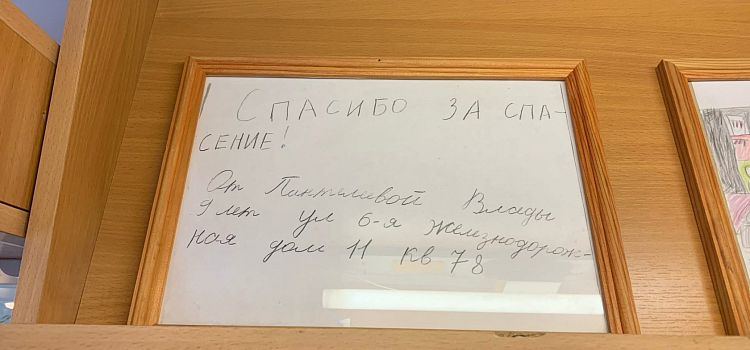 СПАСИБО ЗА СПА-
СЕНИЕ!
От Пантеливой Влады
9 лет ул 6-я Железнодорож-
ная дом 11 кв 78